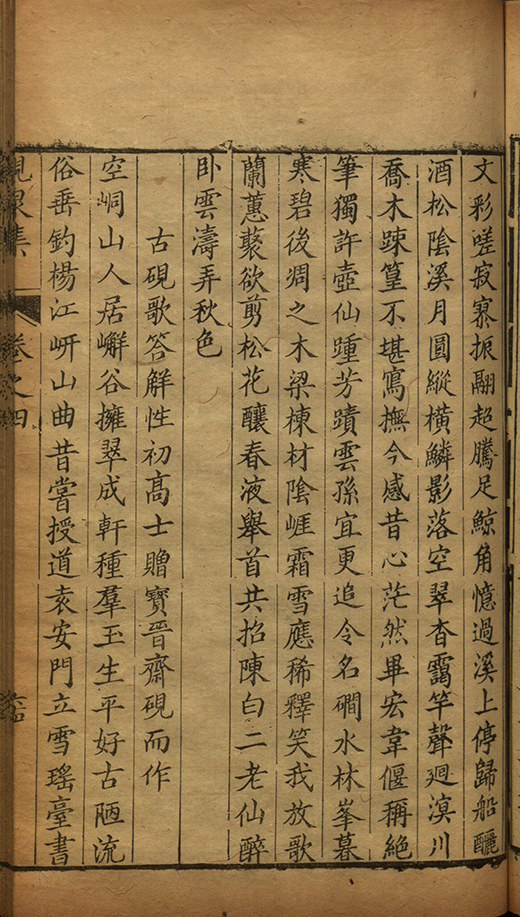 文彩嗟寂寞振翮超騰足鯨角憶過溪上停歸船釃
酒松陰溪月圓縱橫鱗影落空翠杳靄竿聲迴溟川
喬木踈篁不堪寫撫今感昔心茫然畢宏韋偃稱絕
筆獨許壺仙踵芳蹟雲孫宜更追令名磵水林峯暮
寒碧後凋之木梁棟材陰崖霜雪應稀釋笑我放歌
蘭蕙褧欲剪松花釀春液舉首共招陳白二老仙醉
卧雲濤弄秋色
古硯歌答解性初高士贈寶晉齋硯而作
空峒山人居嶰谷擁翠成軒種羣玉生平好古陋流
俗垂釣楊江岍山曲昔嘗授道袁安門立雪瑤臺書
卷之四